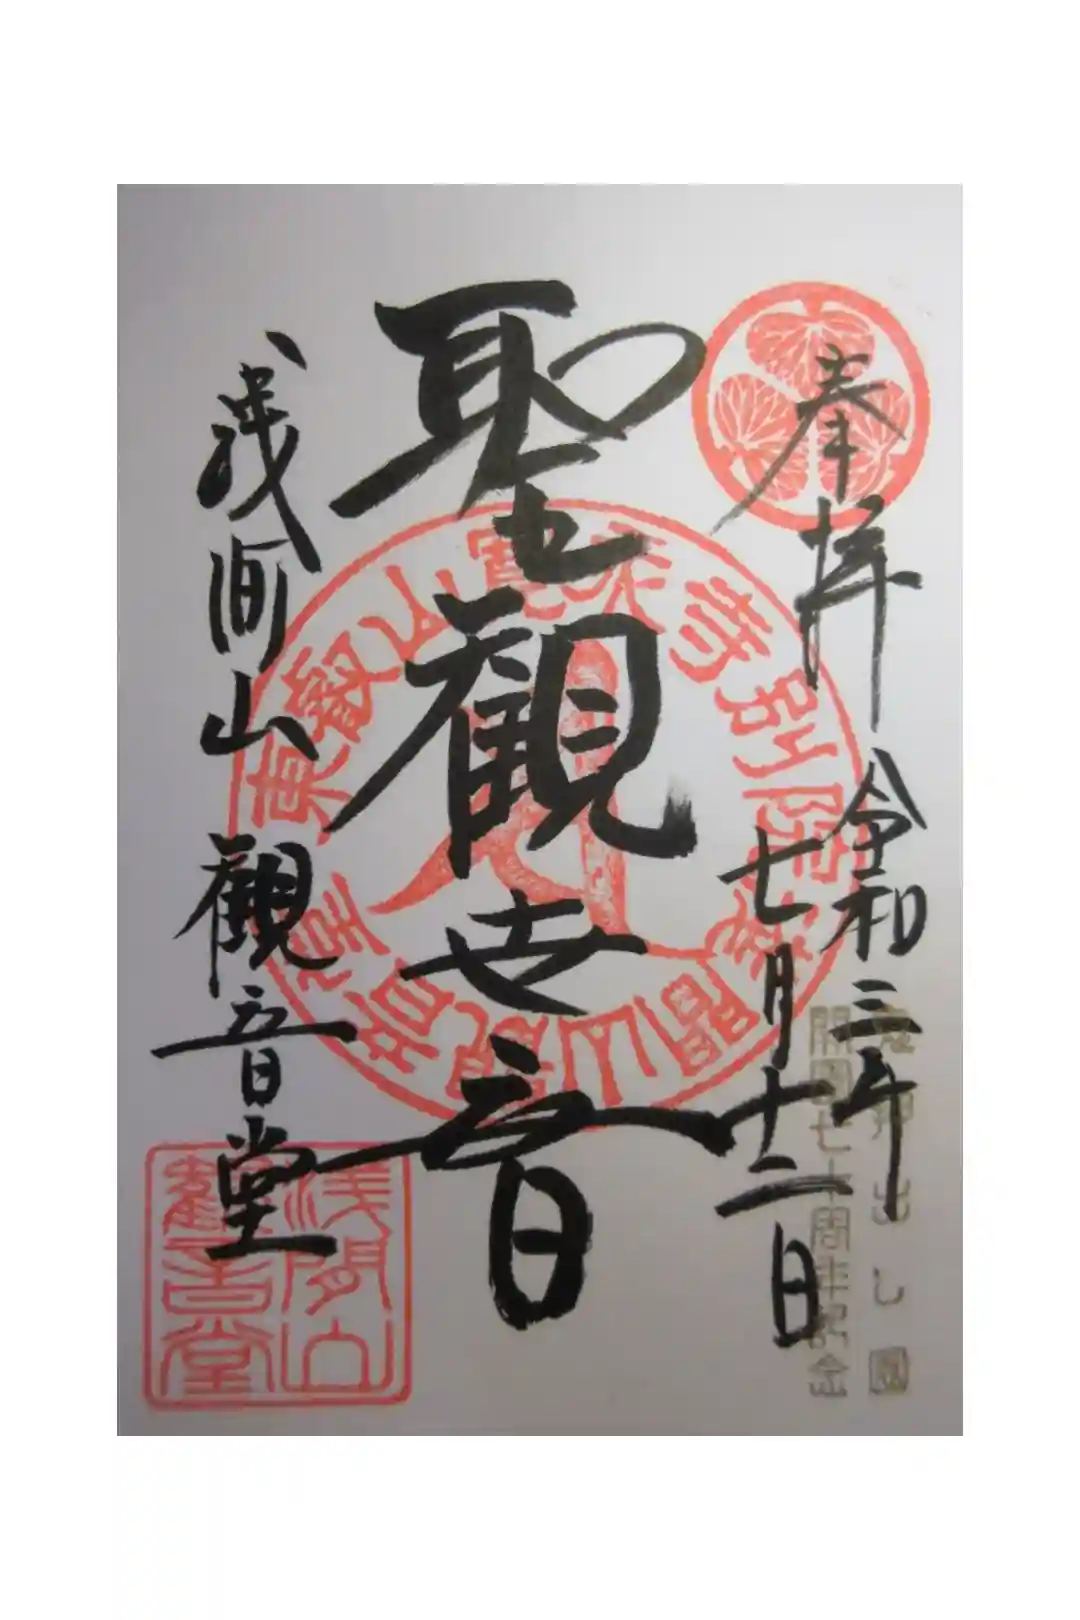 奉拝
令和三年
七月十二日
鬼押出し園
開園七十周年記念
聖観世音
東叡山寛永寺別院浅間山観音堂
浅間山観音堂
浅間山
観音堂